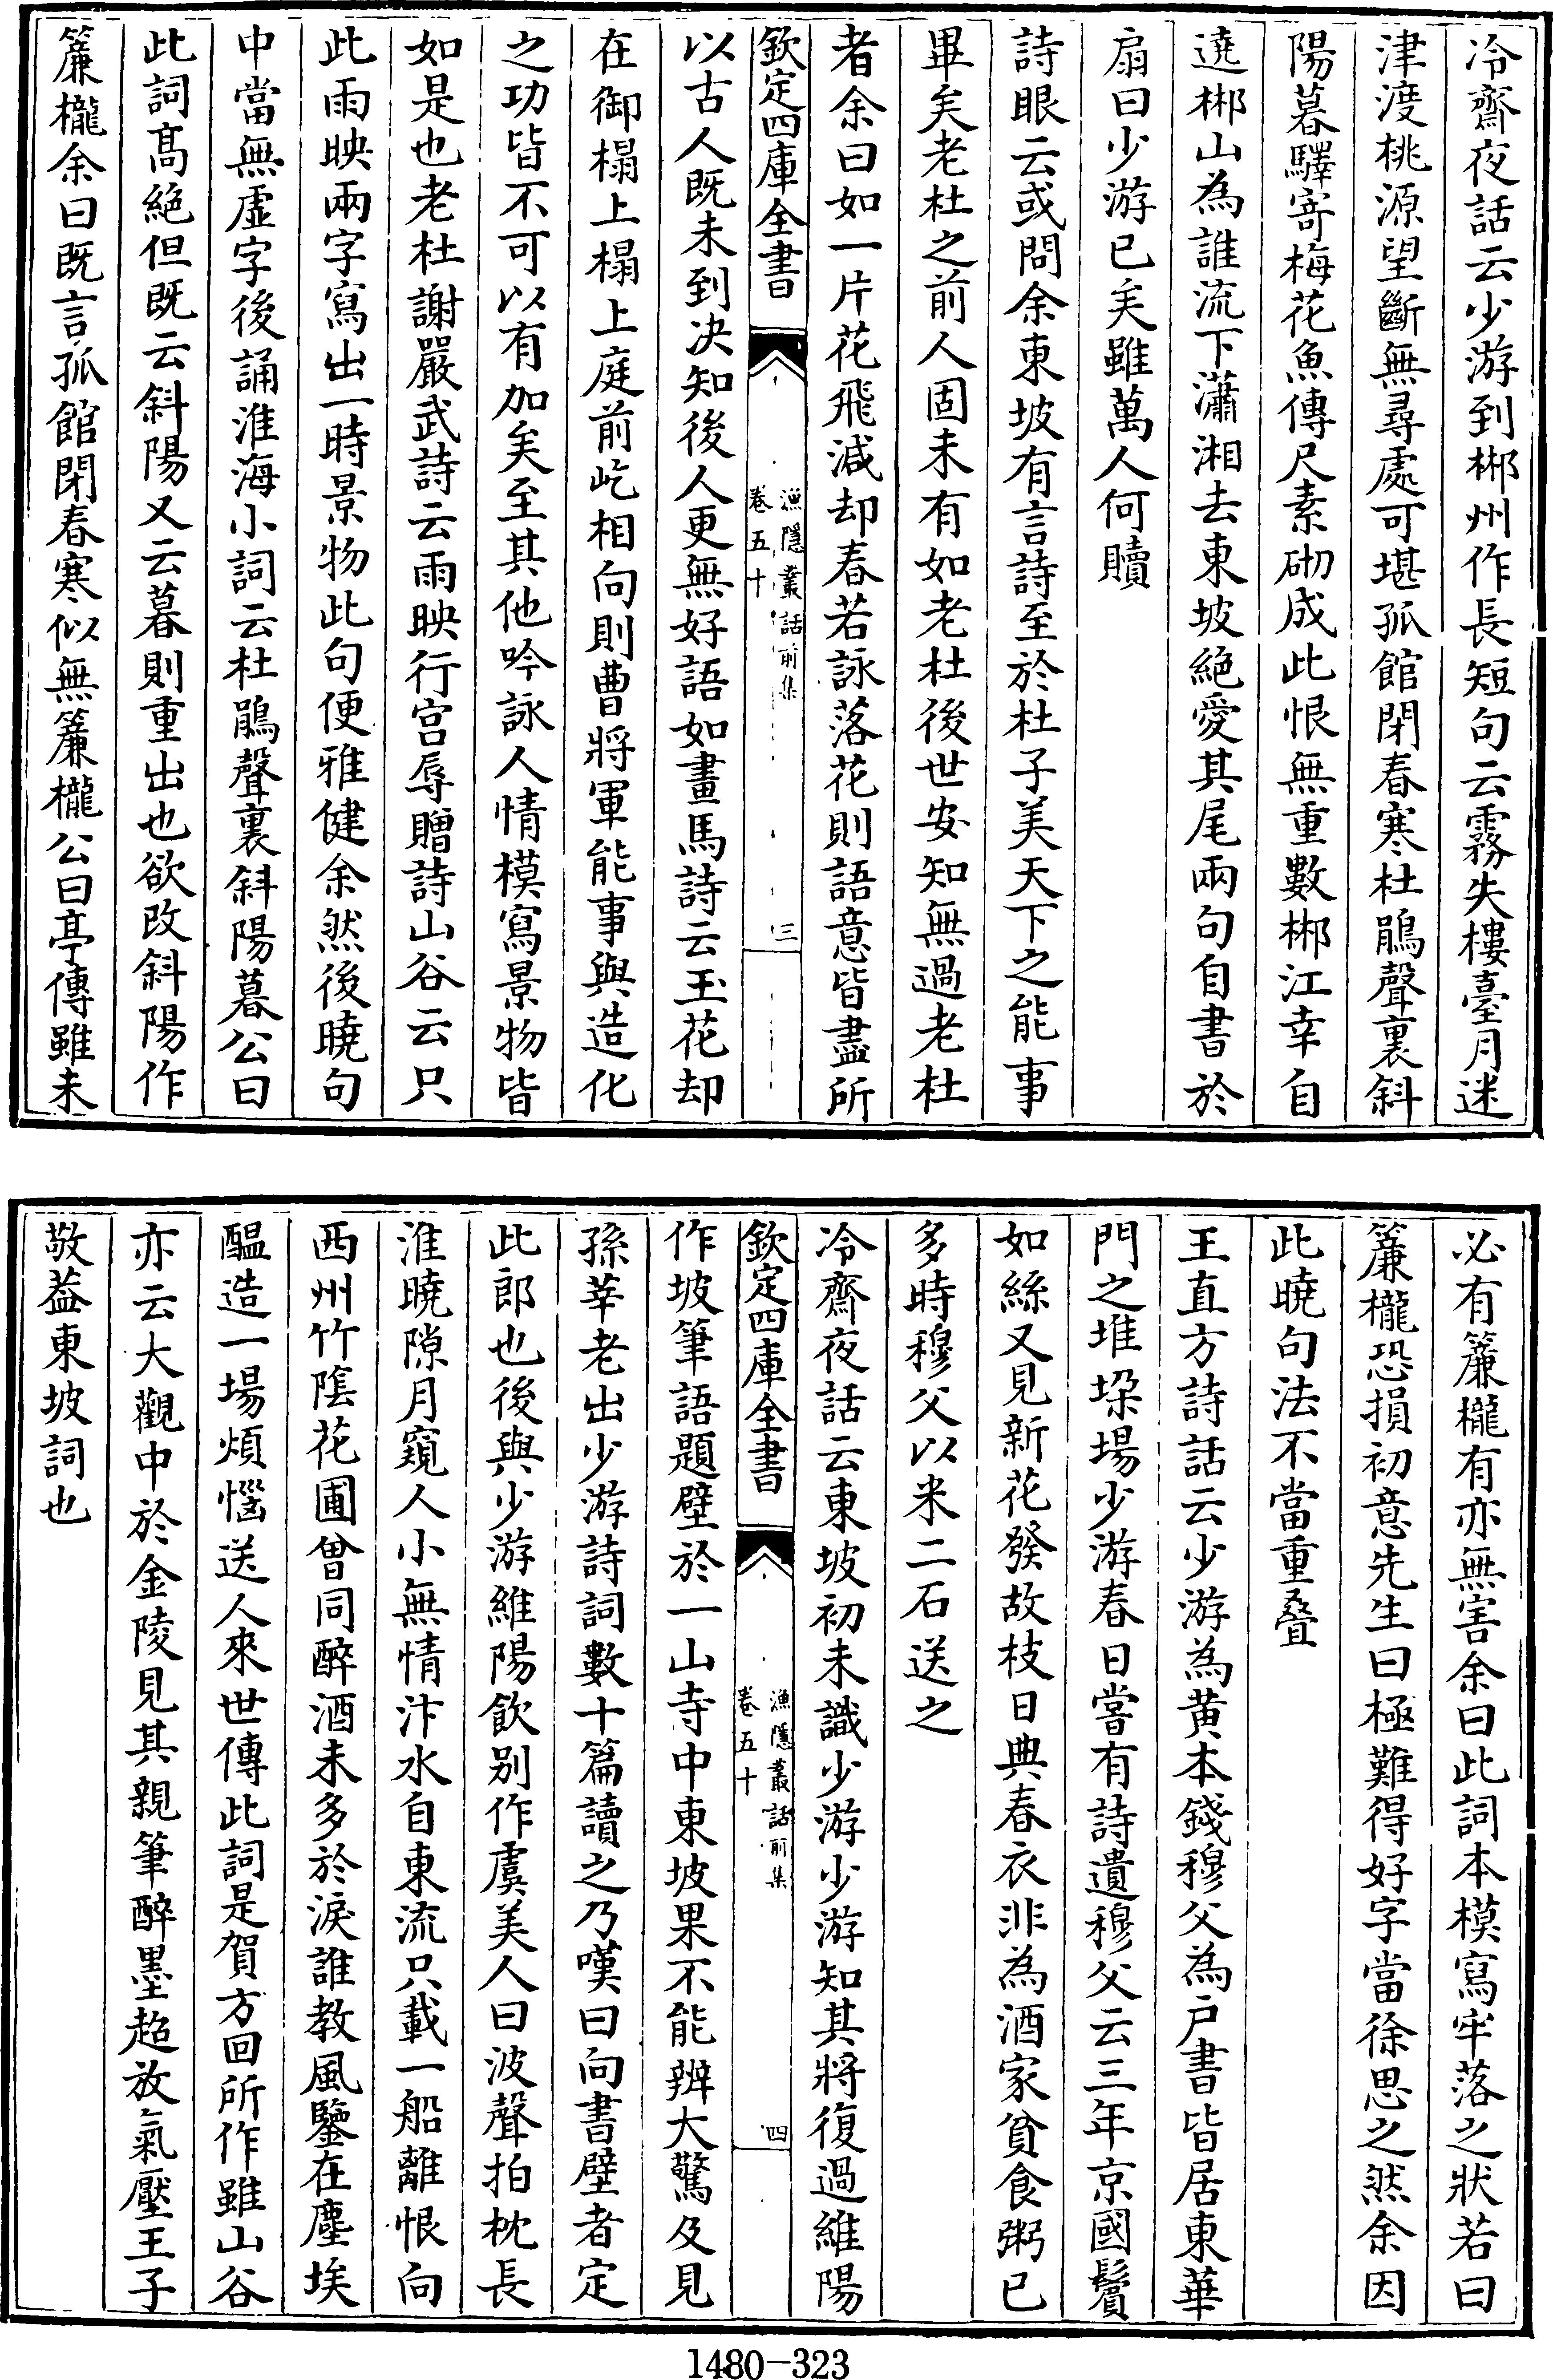 冷齋夜話云少游到郴州作長短句云霧失樓臺月迷
津渡桃源望斷無尋處可堪孤館閉春寒杜鵑聲裏斜
陽暮驛寄梅花魚傳尺素砌成此恨無重數郴江幸自
遶郴山為誰流下瀟湘去東坡絶愛其尾兩句自書於
扇曰少游已矣雖萬人何贖
詩眼云或問余東坡有言詩至於杜子美天下之能事
畢矣老杜之前人固未有如老杜後世安知無過老杜
者余曰如一片花飛減却春若詠落花則語意皆盡所
欽定四庫全書
漁隱叢話前集
卷五十
三
以古人既未到決知後人更無好語如畫馬詩云玉花却
在御榻上榻上庭前屹相向則曹將軍能事與造化
之功皆不可以有加矣至其他吟詠人情模寫景物皆
如是也老杜謝嚴武詩云雨映行宮辱贈詩山谷云只
此雨映兩字寫出一時景物此句便雅健余然後曉句
中當無虛字後誦淮海小詞云杜鵑聲裏斜陽暮公曰
此詞髙絶但既云斜陽又云暮則重出也欲改斜陽作
簾櫳余曰既言孤館閉春寒似無簾櫳公曰亭傳雖未
必有簾櫳有亦無害余曰此詞本模寫牢落之狀若曰
簾櫳恐損初意先生曰極難得好字當徐思之然余因
此曉句法不當重疊
王直方詩話云少游為黃本錢穆父為戶書皆居東華
門之堆垛場少游春日嘗有詩遺穆父云三年京國鬢
如絲又見新花發故枝日典春衣非為酒家貧食粥已
多時穆父以米二石送之
冷齋夜話云東坡初未識少游少游知其將復過維陽
欽定四庫全書
漁隱叢話前集
卷五十
四
作坡筆語題壁於一山寺中東坡果不能辨大驚及見
孫莘老出少游詩詞數十篇讀之乃嘆曰向書壁者定
此郎也後與少游維陽飲别作虞美人曰波聲拍枕長
淮曉隙月窺人小無情汴水自東流只載一船離恨向
西州竹陰花圃曾同醉酒未多於淚誰教風鑒在塵埃
醖造一場煩惱送人來世傳此詞是賀方回所作雖山谷
亦云大觀中於金陵見其親筆醉墨超放氣壓王子
敬葢東坡詞也
1480-323